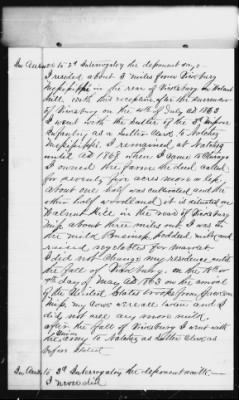 In Answer to 2d Interrogatory the deponent says
I resided about 3 miles from Vicksburg
Mississippi in the rear of Vicksburg on Walnut
Hill with this exception after the surrender
of Vicksburg on the 4th of July AD 1863
I went with the Sutler of the
Infantry as a Sutlers Clerk to Natchez
Mississippi. I remained at Natchez
until AD 1865 when I came to Chicago
I owned the farm the deed called
for seventy five acres more or less
about one half was cultivated and the
other half woodland it is situated on
Walnut Hill in the rear of Vicksburg
Miss about three miles out I was in
the milk business peddled milk and
raised vegetables for market
I did not change my residence until
the fall of Vicksburg. on the 18th or
19th day of May AD 1863 on the arrival
of the United States troops from
Miss my cows were all taken and I
did not sell any more milk.
after the fall of Vicksburg I went with
the Union army to Natchez as Sutlers Clerk as
before stated
In Answer to 3d Interrogatory the deponent saith
I never did